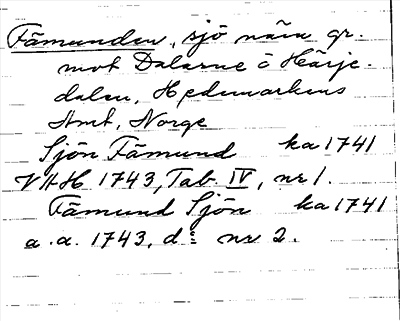 Fämunden, sjö nära gr.
mot Dalarne o Härje-
dalen, Hedemarkens
Amt, Norge
Sjön Fämund ka 1741
VAH 1743, Tab. IV, nr 1.
Fämund Sjön ka 1741
a.a. 1743, d:o nr 2.